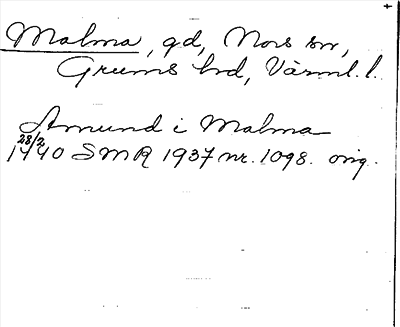 Malma, gd, Nors sn,
Grums hd, Värml. l.
Amund i Malma
28/2
1440 SMR 1937 nr. 1098. orig.